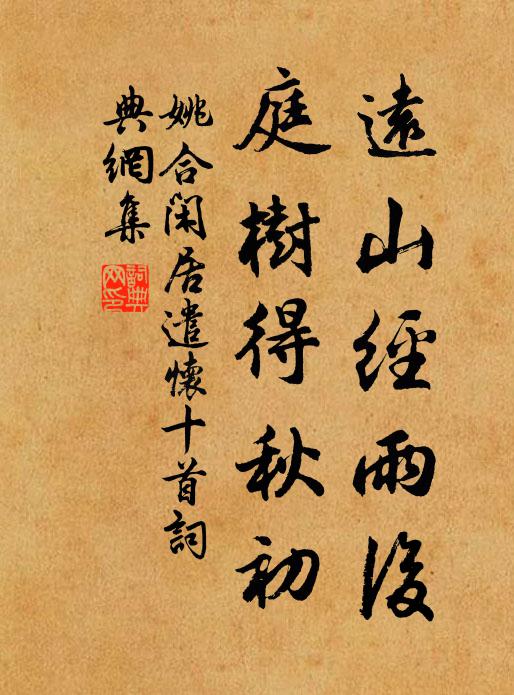 遠山經雨後
庭樹得秋初
姚合閑居遣懷十首詞
典網集
詞典網印